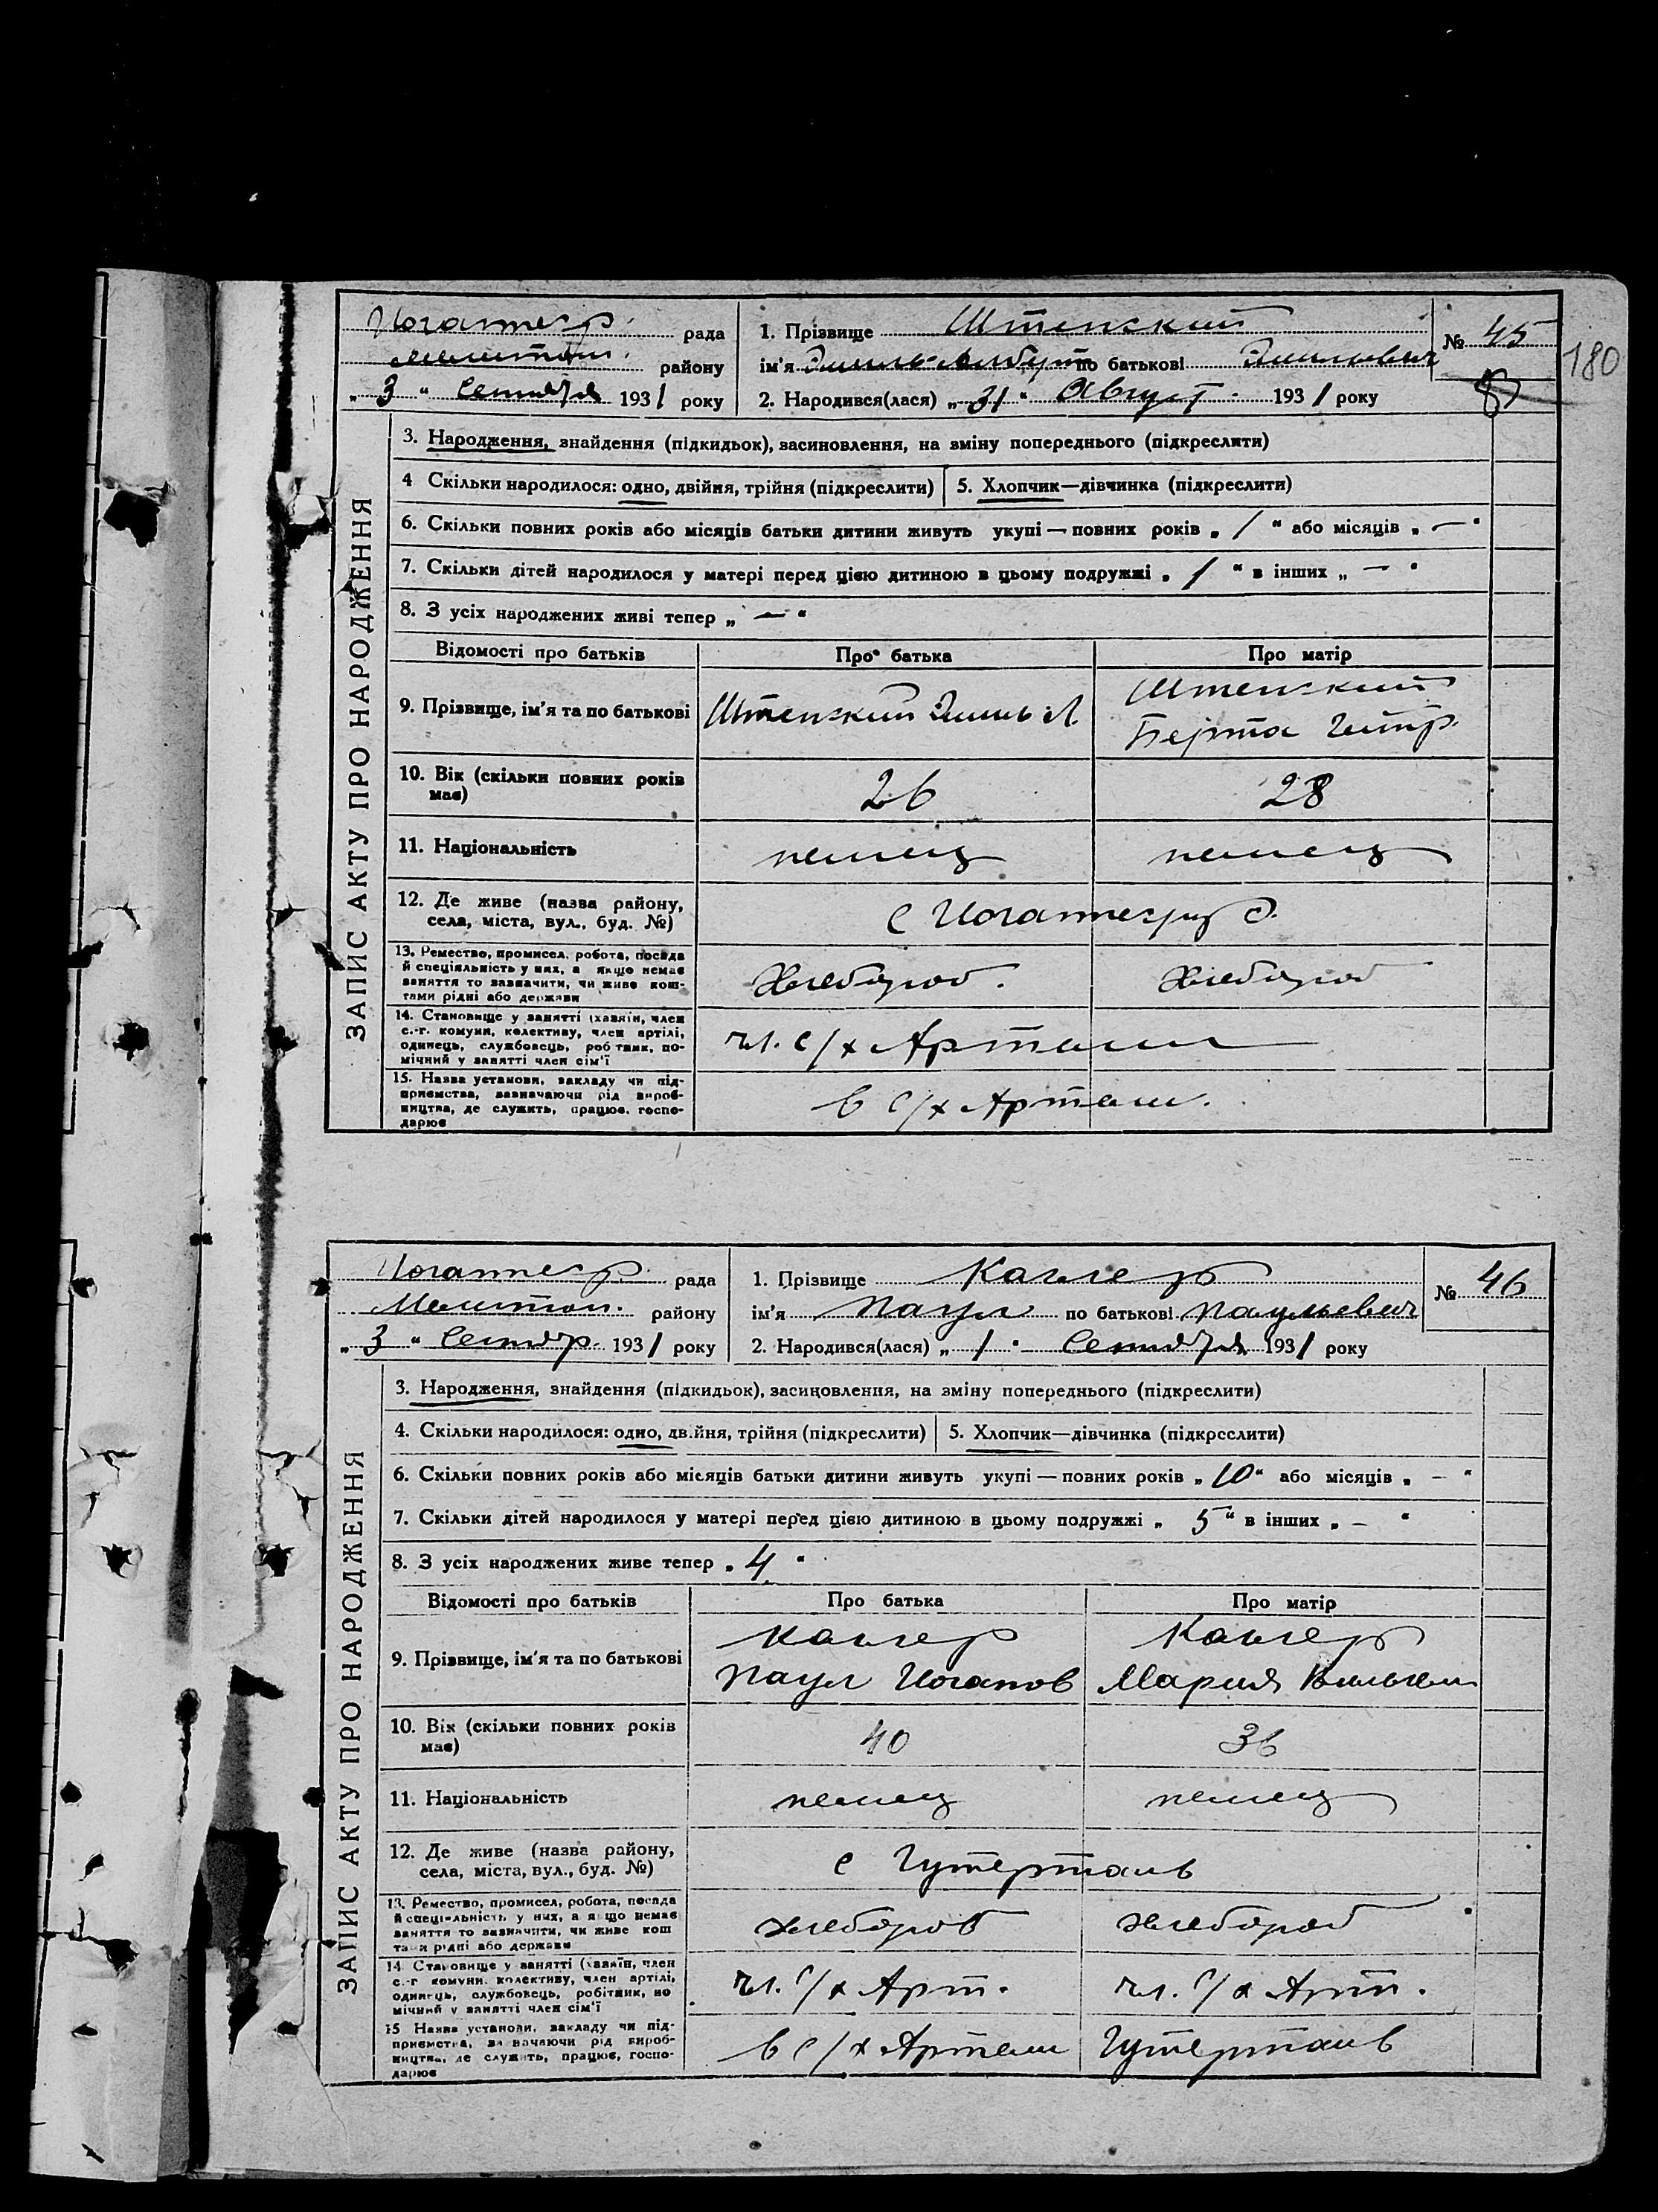 180
рада
району
"3" 1931 року
1. Прізвище Штенский
ім'я по батькові Эмильевич
2. Народився(лася) "31" Август 1931 року
№ 45
ЗАПИС АКТУ ПРО НАРОДЖЕННЯ
3. Народження, знайдення (підкидьок), засиновлення, на зміну попереднього (підкреслити)
4 Скільки народилося: одно, двійня, трійня (підкреслити)
5. Хлопчик—дівчинка (підкреслити)
6. Скільки повних років або місяців батьки дитини живуть укупі — повних років „ 1 “ або місяців „ — “
7. Скільки дітей народилося у матері перед цією дитиною в цьому подружжі „ 1 “ в інших „ — “
8. З усіх народжених живі тепер „ — “
Відомості про батьків Про батька Про матір
9. Прізвище, ім'я та по батькові
Штенский Эмиль
Штенский
Берта
10. Вік (скільки повних років має) 26 28
11. Національність немец немец
12. Де живе (назва району,
села, міста, вул., буд. №)
13. Ремество, промисел, робота, посада
й спеціяльність у них, а якщо немає
заняття то зазначити, чи живе кош-
тами рідні або держави
Хлебороб. Хлебороб
14. Становище у занятті (хазяїн, член
с.-г. комуни, колективу, член артілі,
одинець, службовець, робітник, по-
мічний у занятті член сім'ї
чл. с/х Артели
15. Назва установи, закладу чи під-
приємства, зазначаючи рід вироб-
ництва, де служить, працює, госпо-
дарює
в с/х Артели.
рада
району
"3" 1931 року
1. Прізвище
ім'я Паул по батькові Паульевич
2. Народився(лася) "1" 1931 року
№ 46
ЗАПИС АКТУ ПРО НАРОДЖЕННЯ
3. Народження, знайдення (підкидьок), засиновлення, на зміну попереднього (підкреслити)
4. Скільки народилося: одно, двійня, трійня (підкреслити)
5. Хлопчик—дівчинка (підкреслити)
6. Скільки повних років або місяців батьки дитини живуть укупі — повних років „ 10 “ або місяців „ – “
7. Скільки дітей народилося у матері перед цією дитиною в цьому подружжі „ 5 “ в інших „ – “
8. З усіх народжених живе тепер „ 4 “
Відомості про батьків Про батька Про матір
9. Прізвище, ім'я та по батькові
Паул Иоганов
Мария
10. Вік (скільки повних років має) 40 36
11. Національність немец немец
12. Де живе (назва району,
села, міста, вул., буд. №)
с Гутерталь
13. Ремество, промисел, робота, посада
й спеціяльність у них, а якщо немає
заняття то зазначити, чи живе кош
тами рідні або держави
хлебороб хлебороб
14. Становище у занятті (хазяїн, член
с.-г комуни, колективу, член артілі,
одинець, службовець, робітник, по
мічний у занятті член сім'ї
чл. с/х Арт. чл. с/х Арт.
15 Назва установи, закладу чи під-
приємства, зазначаючи рід вироб-
ництва, де служить, працює, госпо-
дарює
в с/х Артели Гутерталь